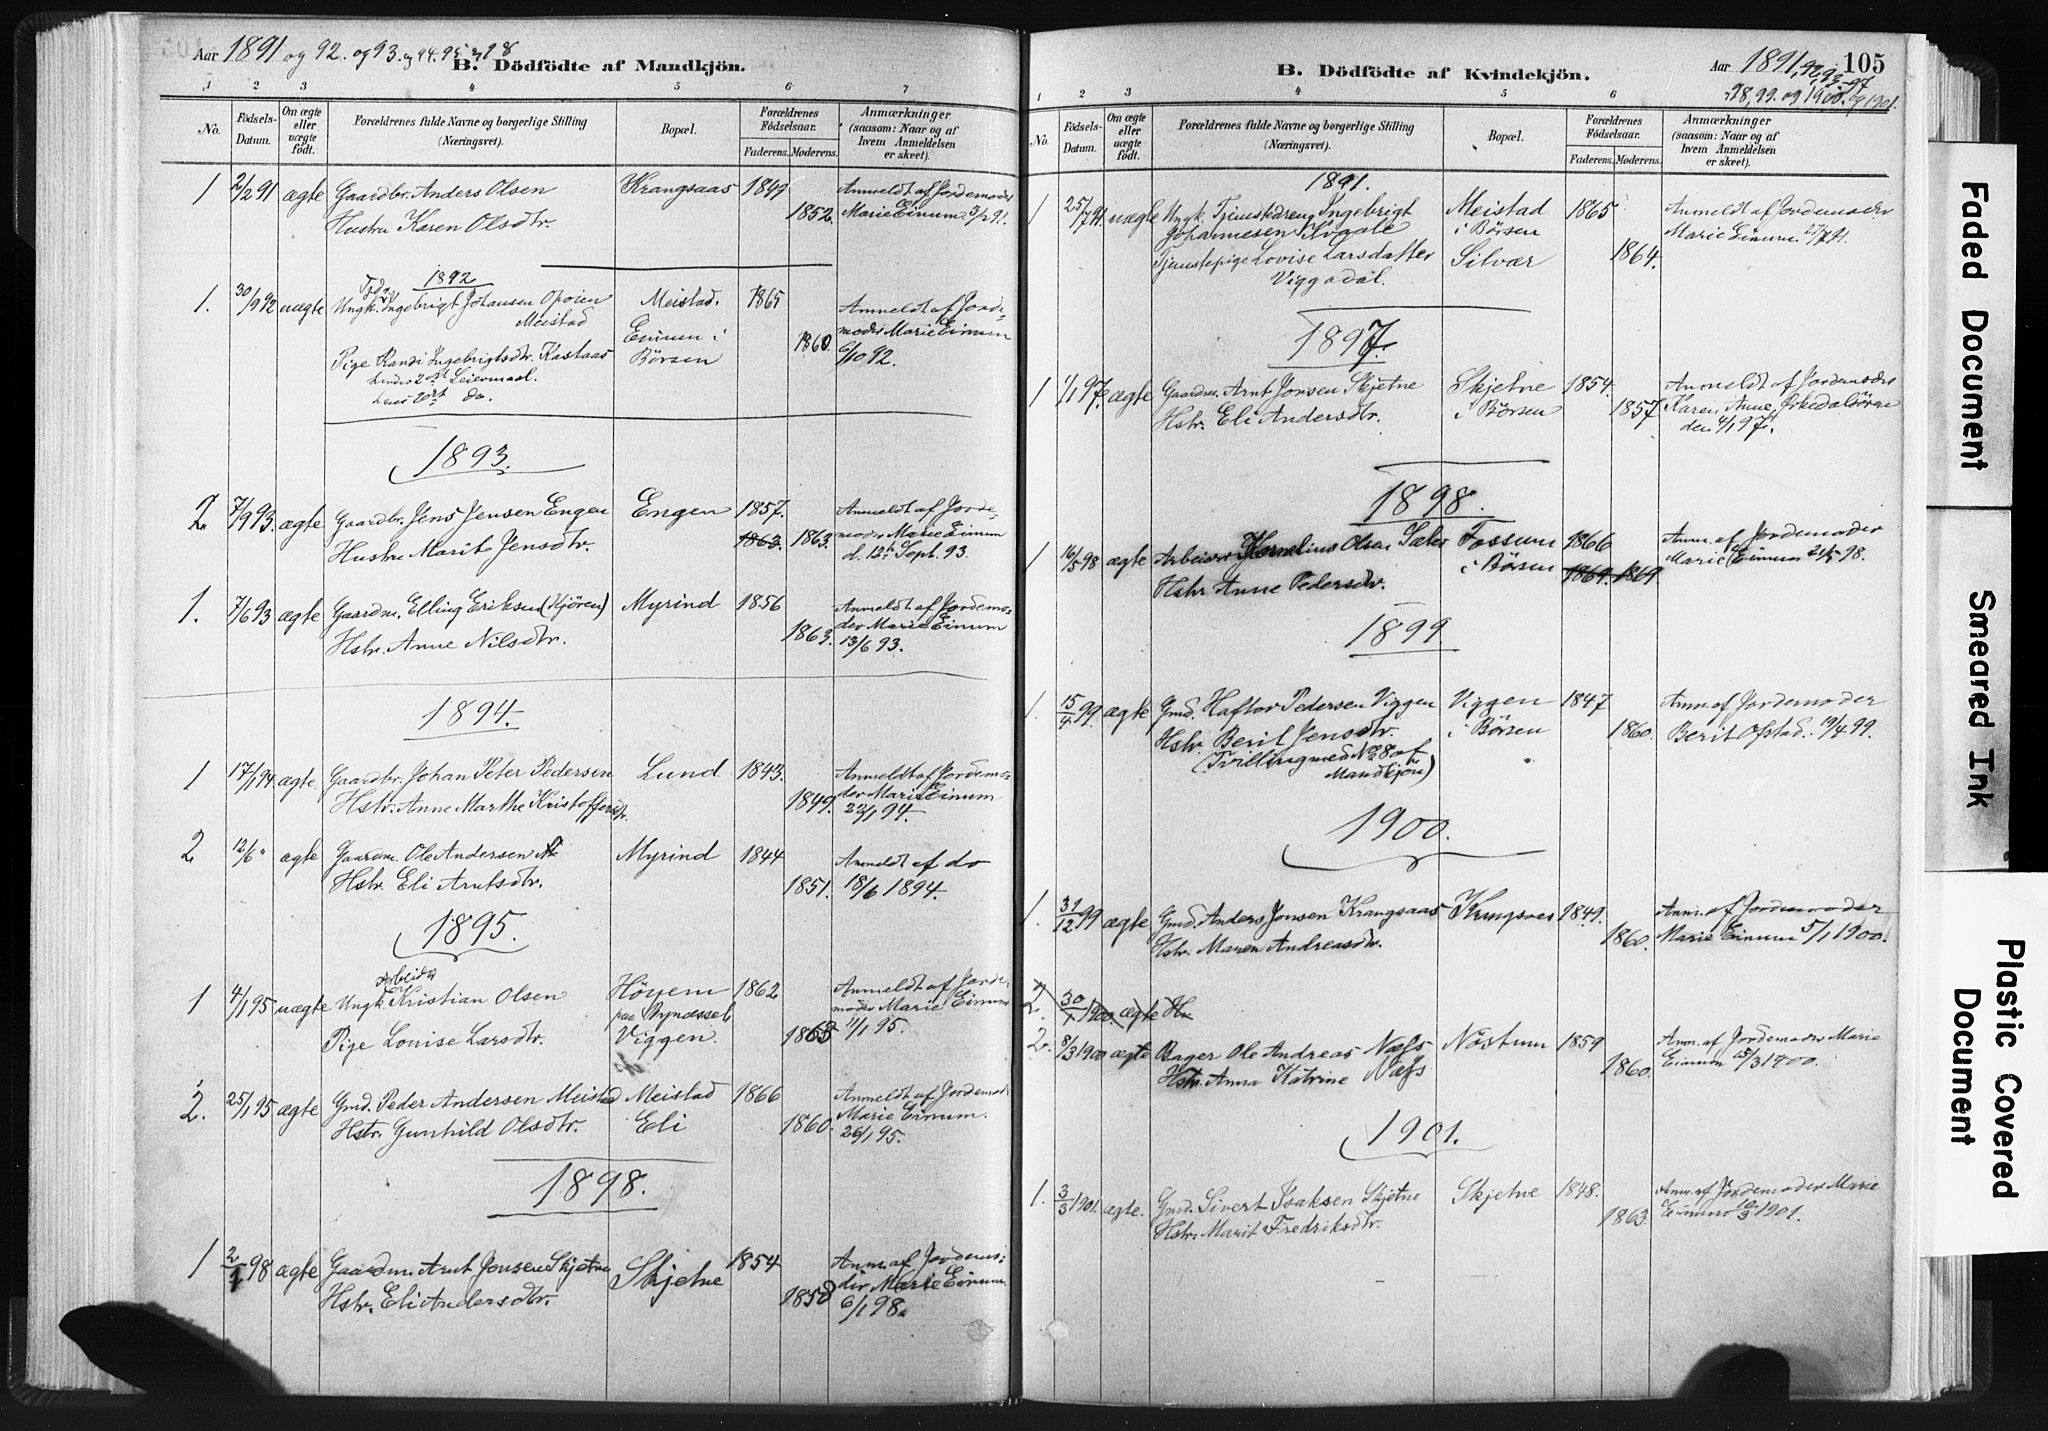 Aar 1891 og 92. og 93. og 94. 95 og 98
B. Dödfödte af Mandkjön.
1 2 3 4 5 6 7
No.
Födsels-Datum.
Om ægte eller uægte födt.
Forældrenes fulde Navne og borgerlige Stilling (Næringsvei).
Bopæl.
Forældrenes Födselsaar.
Faderens. Moderens.
Anmærkninger (saasom: Naar og af hvem Anmeldelsen er skeet).
1 2/2 91 ægte Gaardbr. Anders Olsen Krangsaas 1849 Anmeldt af Jordemoder
Hustru Karen Olsdtr. 1852. Marie Eimum 3/2 91.
1892
1. 30/9 92 uægte Ungk. Ingebrigt Johansen Opöien Meistad. 1865 Anmeldt af Jorde-
Meistad Eimum i 1860. moder Marie Eimum
Pige Randi Ingebrigtsdtr. Kastaas Börsen 6/10 92.
hendes 2det Leiermaal.
hans 2det do.
1893.
2. 7/9 93. ægte Gaardbr. Jens Jensen Engen Engen 1857. Anmeldt af Jorde-
Hustru Marit Jensdtr. 1863. 1863. moder Marie Eimum
d. 12te Sept. 93.
1. 7/6 93 ægte Gaardm. Elling Eriksen (Kjören) Myrind 1856 Anmeldt af Jordemo-
Hstr. Anne Nilsdtr. 1863. der Marie Eimum
13/6 93.
1894.
1 17/1 94. ægte Gaardbr. Johan Peter Pedersen Lund 1843. Anmeldt af Jordemo-
Hstr. Anne Marthe Kristoffersdtr. 1849. der Marie Eimum
22/1 94.
2 12/6 " ægte Gaardm. Ole Andersen Myrind 1844 Anmeldt af do
Hstr. Eli Arntsdtr. 1851. 18/6 1894.
1895.
Arbeider
1 4/1 95 uægte Ungk. Kristian Olsen Höyem 1862 Anmeldt af Jorde-
paa Byneset moder Marie Eimum
Pige Louise Larsdtr. Viggen. 1863 11/1 95.
2. 25/1 95 ægte Gmd. Peder Andersen Meistad Meistad 1866 Anmeldt af Jordemod.
Hstr. Gunhild Olsdtr. Eli 1860. Marie Eimum.
26/1 95.
1898.
1 2/1 98 ægte Gaardm. Arnt Jonsen Skjetne Skjetne 1854 Anm. af Jordemo-
Hstr. Eli Andersdtr. 1858 der Marie Eimum
6/1 98.
B. Dödfödte af Kvindekjön.
Aar 1891, 92, 93, 97
98, 99. og 1900. og 1901.
105
1 2 3 4 5 6
No.
Födsels-Datum.
Om ægte eller uægte födt.
Forældrenes fulde Navne og borgerlige Stilling (Næringsvei).
Bopæl.
Forældrenes Födselsaar.
Faderens. Moderens.
Anmærkninger (saasom: Naar og af hvem Anmeldelsen er skeet).
1891.
1 25/7 91. uægte Ungk. Tjenstedreng Ingebrigt Meistad 1865 Anmeldt af Jordemoder
Johannesen i Börsen Marie Eimum 27/7 91.
Tjenstepige Lovise Larsdatter Silvær 1864.
Viggadal.
1897.
1 1/1 97. ægte Gaardm. Arnt Jonsen Skjetne Skjetne 1854. Anmeldt af Jordemoder
Hstr. Eli Andersdtr. i Börsen 1857 Karen Anne Orkedalsören
den 4/1 97.
1898.
1 16/5 98 ægte Arbeider Kornelius Olsen Sæter Fossum 1866 Anm. af Jordemoder
Hstr Anne Pedersdtr. i Börsen 1869. 1869 Marie Eimum 21/5 98.
1899
1. 15/4 99 ægte Gmd. Haftor Pedersen Viggen Viggen 1847 Anm. af Jordemoder
Hstr. Berit Jensdtr. i Börsen 1860. Berit Ofstad. 19/4 99.
(Tvilling med No 8 af
Mandkjön)
1900.
1. 31/12 99 ægte Gmd. Anders Jonsen Krangsaas Krangsaas 1849. Anm. af Jordemoder
Hstr. Maren Andreasdtr. 1860. Marie Eimum 5/1 1900.
2. 30/1 1900 ægte
2. 8/3 1900 ægte Bager Ole Andreas Næss Nöstum 1859 Anm. af Jordemoder Marie
Hstr. Anna Katrine Næss 1860. Eimum 15/3 1900.
1901.
1. 3/3 1901. ægte. Gmd. Sivert Isaksen Skjetne Skjetne 1848. Anm. af Jordemoder Marie
Hstr. Marit Fredriksdtr. 1863. Eimum 10/3 1901.
Faded Document
Smeared Ink
Plastic Covered
Document